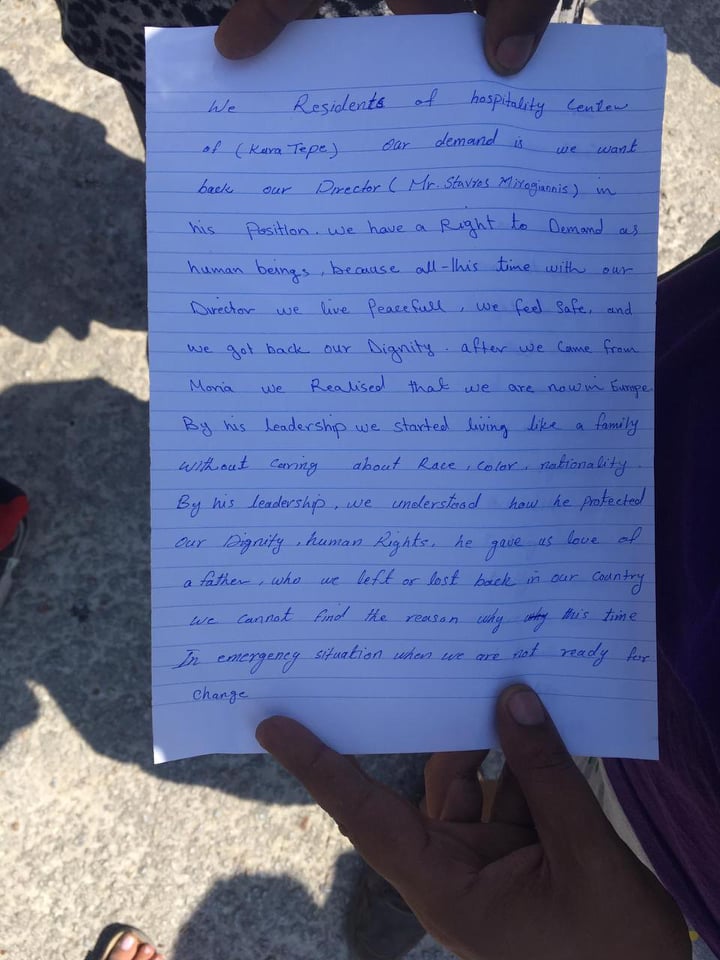 We Residents of hospitality Center
of (Kara Tepe) our demand is we want
back our Director (Mr. Stavros Mirogiannis) in
his Position. we have a Right to Demand as
human beings, because all-this time with our
Director we live Peacefull, we feel Safe, and
we got back our Dignity. after we Came from
Moria we Realised that we are now in Europe
By his leadership we started living like a family
without caring about Race, color, nationality.
By his leadership, we understood how he protected
our Dignity, human Rights, he gave us love of
a father, who we left or lost back in our Country
we cannot find the reason why why this time
In emergency situation when we are not ready for
change